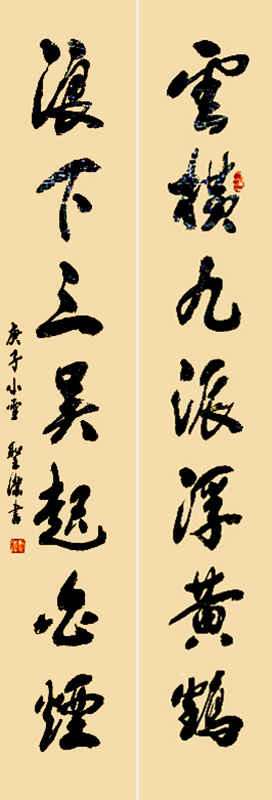 雲横九派浮黄鶴
浪下三吴起白煙
庚子小雪 聖濤書